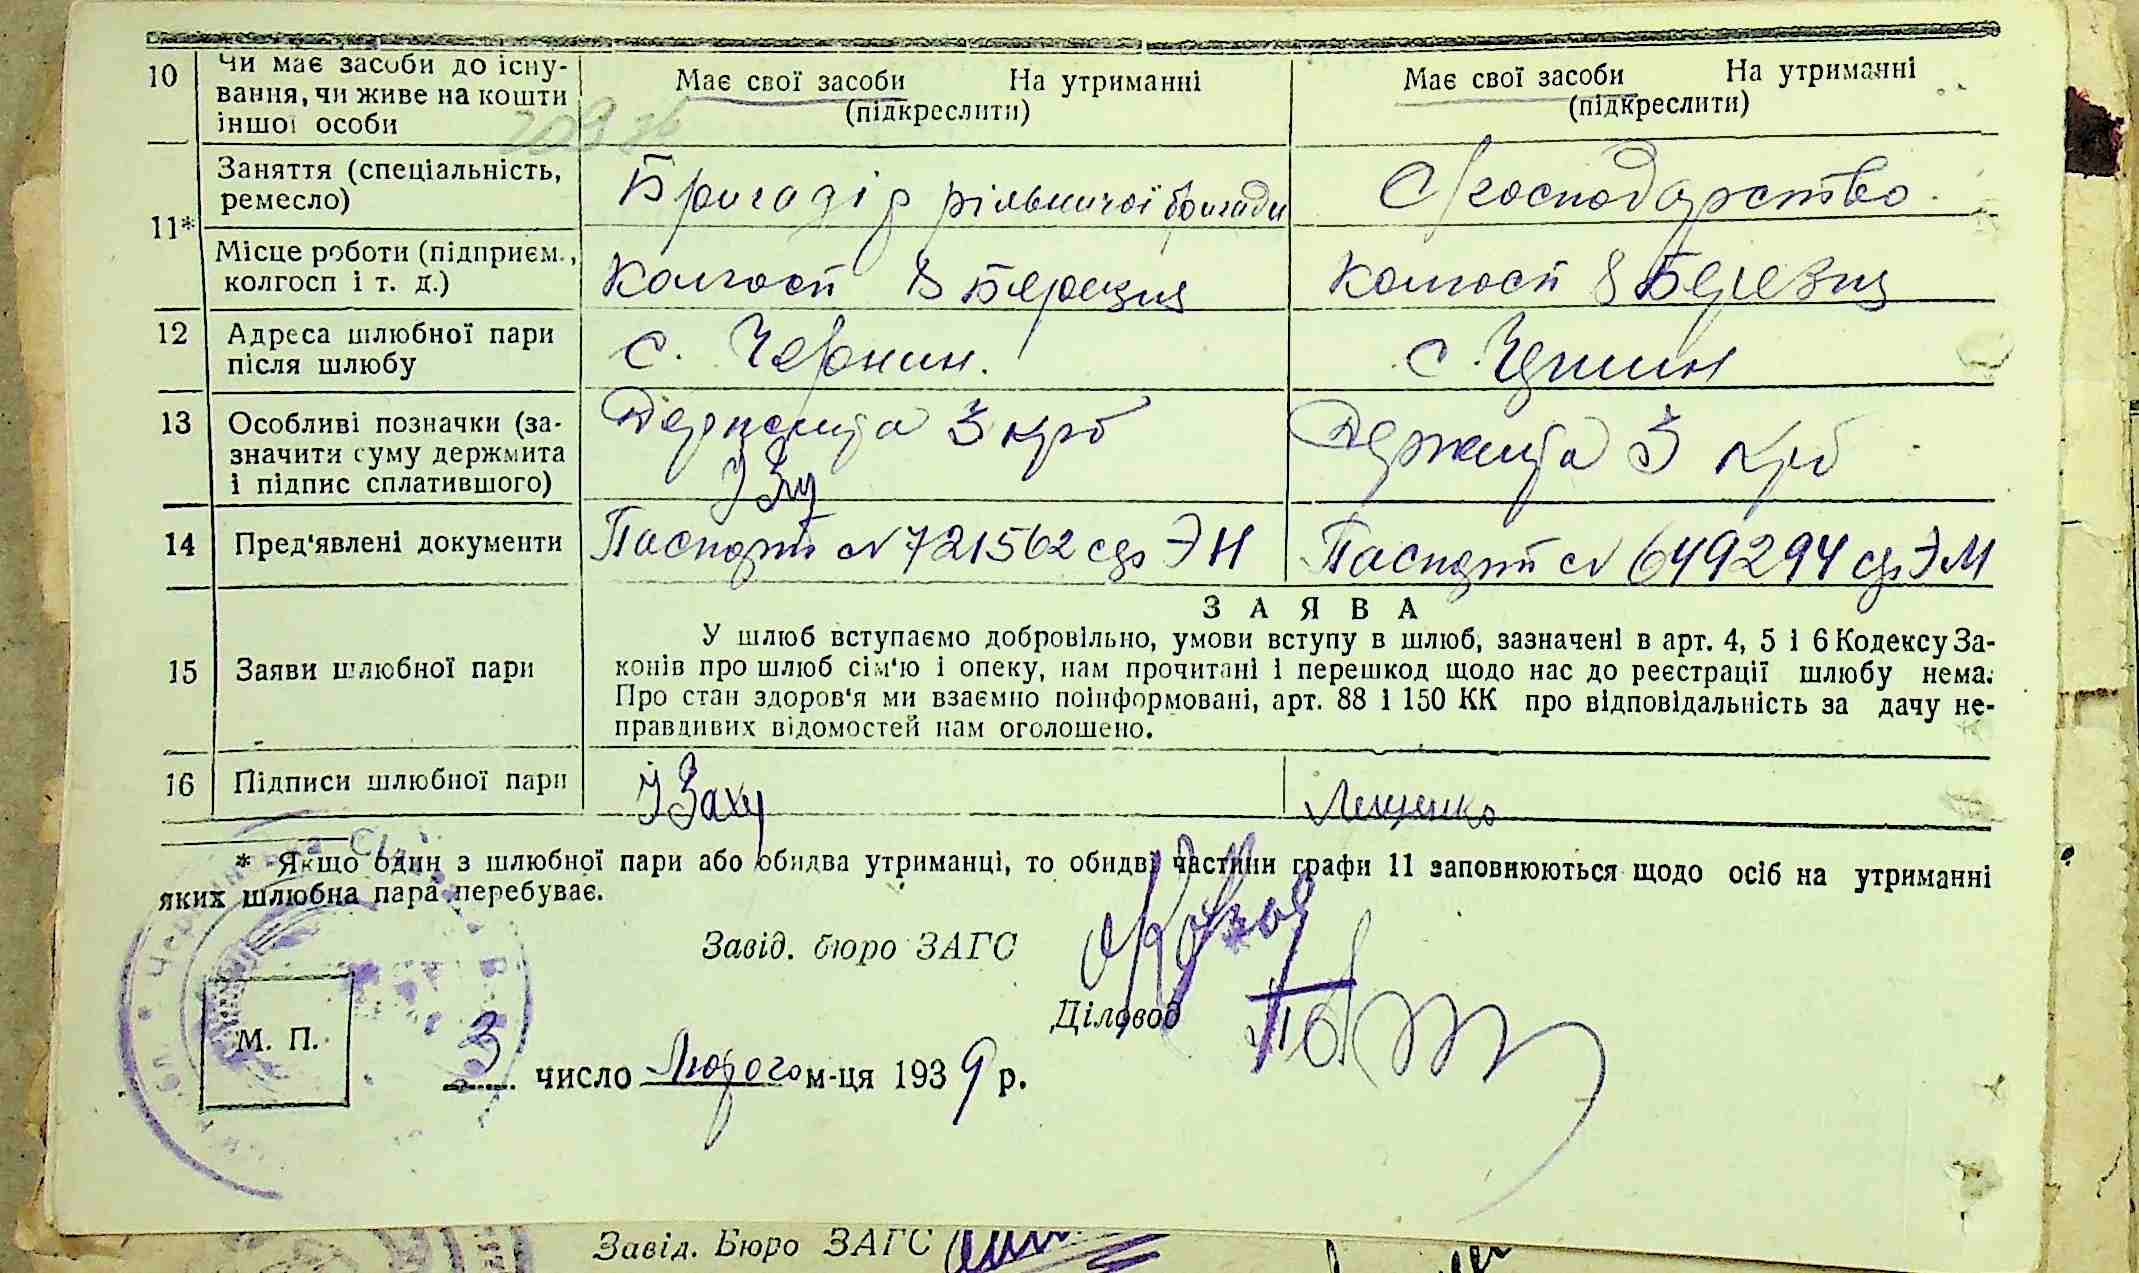 10
Чи має засоби до існу-
вання, чи живе на кошти
іншої особи
Має свої засоби На утриманні
(підкреслити)
Має свої засоби На утриманні
(підкреслити)
11*
Заняття (спеціальність,
ремесло)
Бригадір рільничої бригади
С/господарство
Місце роботи (підприєм.,
колгосп і т. д.)
Колгосп 8 Березня
Колгосп 8 Березня
12
Адреса шлюбної пари
після шлюбу
с. Чернин.
с. Чернин
13
Особливі позначки (за-
значити суму держмита
і підпис сплатившого)
Держмита 3 крб
Держмита 3 крб
14
Пред'явлені документи
Паспорт № 721562 сер ЭН
Паспорт № 649294 сер ЭМ
15
Заяви шлюбної пари
ЗАЯВА
У шлюб вступаємо добровільно, умови вступу в шлюб, зазначені в арт. 4, 5 і 6 Кодексу За-
конів про шлюб сім'ю і опеку, нам прочитані і перешкод щодо нас до реєстрації шлюбу нема.
Про стан здоров'я ми взаємно поінформовані, арт. 88 і 150 КК про відповідальність за дачу не-
правдивих відомостей нам оголошено.
16
Підписи шлюбної пари
І Заху
Лещенко
* Якщо один з шлюбної пари або обидва утриманці, то обидві частини графи 11 заповнюються щодо осіб на утриманні
яких шлюбна пара перебуває.
Завід. бюро ЗАГС
Діловод
М. П.
3 число Лютого м-ця 1939 р.
Завід. Бюро ЗАГС